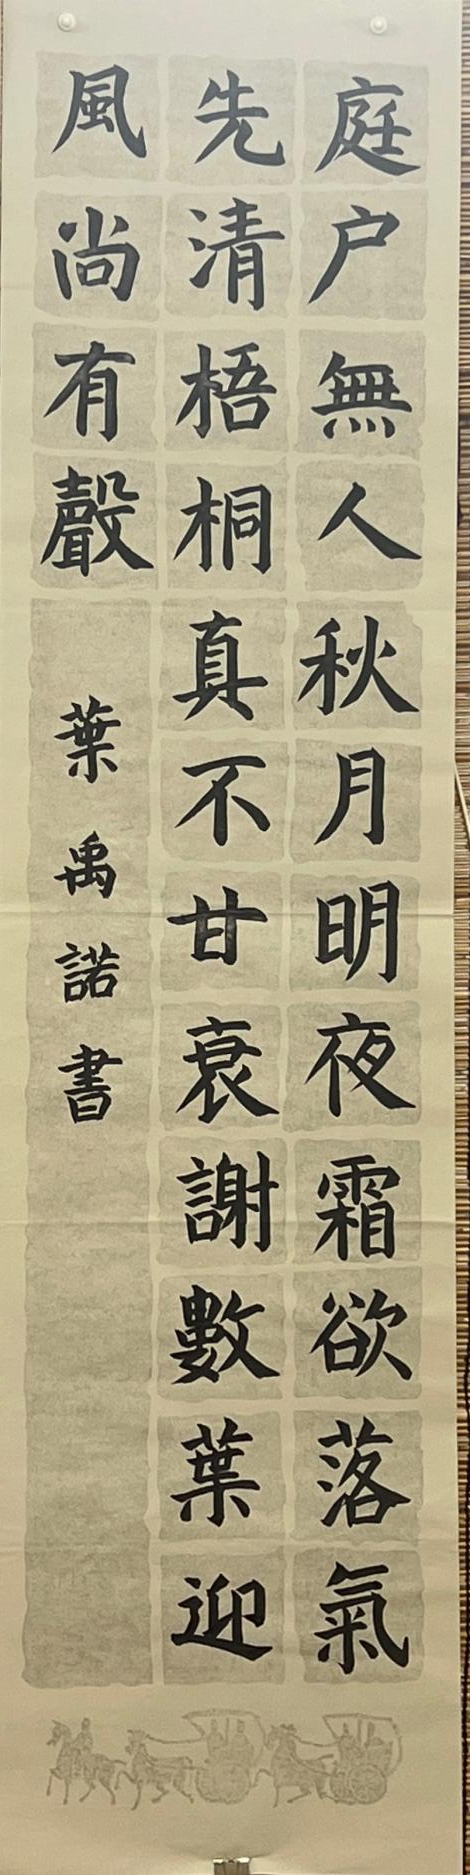 庭户無人秋月明夜霜欲落氣
先清梧桐真不甘衰謝數葉迎
風尚有聲
葉禹諾書